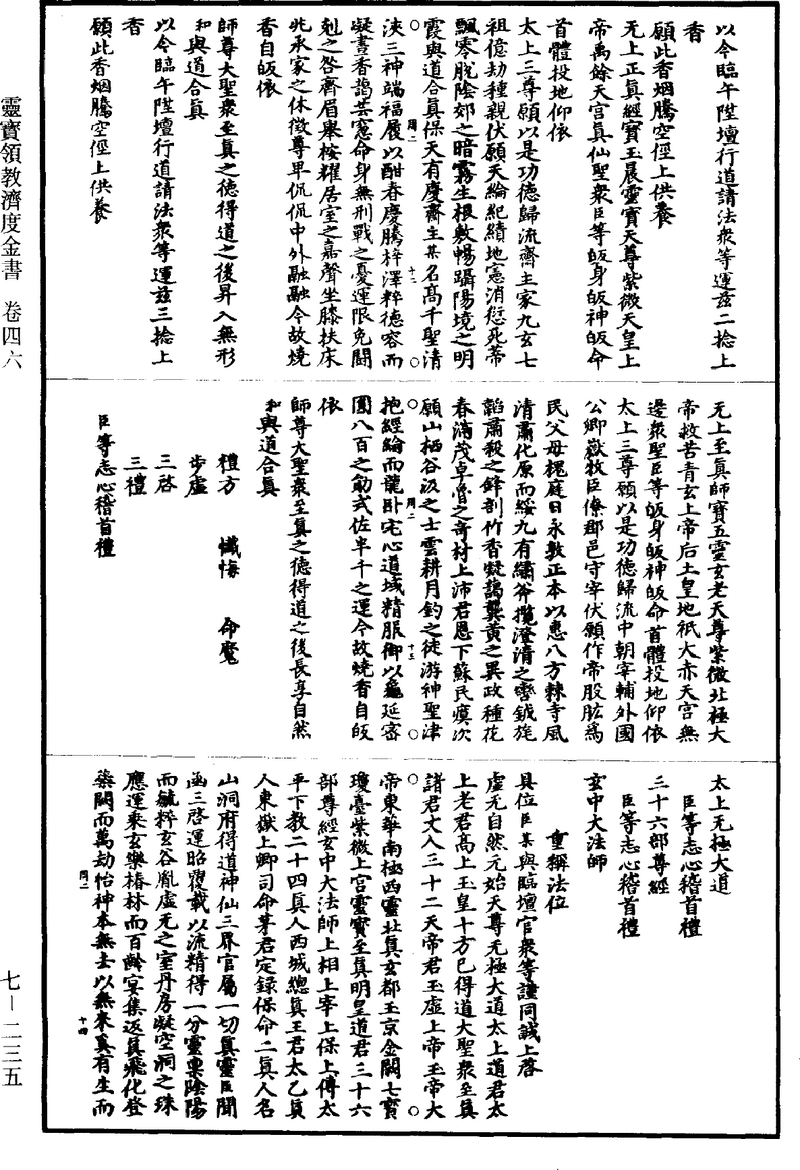 以今臨午陞壇行道請法衆等運兹二捻上
香
願此香烟騰空徑上供養
无上正真經寳玉晨靈寳天尊紫微天皇上
帝禹餘天宫真仙聖衆臣等皈身皈神皈命
首體投地仰依
太上三尊願以是功德歸流齋主家九玄七
祖億劫種親伏願天綸紀績地憲消愆死蒂
飄零脱陰郊之暗霧生根敷暢躡陽境之明
霞與道合真保天有慶齋主某名髙千聖清
浹三神端福履以酣春慶騰梓澤粹德容而
凝晝香藹芸窻命身無刑戰之憂運限免鬭
剋之咎齊眉舉桉耀居室之嘉聲坐膝扶床
兆承家之休徵尊卑侃侃中外融融今故燒
香自皈依
師尊大聖衆至真之德得道之後昇入無形
和與道合真
以今臨午陞壇行道請法衆等運兹三捻上
香
願此香烟騰空徑上供養
无上至真師寳五靈玄老天尊紫微北極大
帝救苦青玄上帝后土皇地祇大赤天宫無
邊衆聖臣等皈身皈神皈命首體投地仰依
太上三尊願以是功德歸流中朝宰輔外國
公卿嶽牧臣僚郡邑守宰伏願作帝股肱爲
民父母槐庭日永敷正本以惠八方棘寺風
清肅化原而綏九有繡斧攬澄清之轡鉞旄
韜肅殺之鋒剖竹香凝藹龔黄之異政種花
春滿茂卓魯之竒材上沛君恩下蘇民瘼次
願山栖谷汲之士雲耕月釣之徒游神聖津
抱經綸而龍卧宅心道域精服御以龜延密
圓八百之勛式佐半千之運今故燒香自皈
依
師尊大聖衆至真之德得道之後長享自然
和與道合真
禮方 懺悔 命魔
步虚
三啓
三禮
臣等志心稽首禮
太上无極大道
臣等志心稽首禮
三十六部尊經
臣等志心稽首禮
玄中大法師
重稱法位
具位臣某與臨壇官衆等謹同誠上啓
虚无自然元始天尊无極大道太上道君太
上老君髙上玉皇十方已得道大聖衆至真
諸君丈人三十二天帝君玉虚上帝玉帝大
帝東華南極西靈北真玄都玉京金闕七寳
瓊臺紫微上宫靈寳至真明皇道君三十六
部尊經玄中大法師上相上宰上保上傅太
平下教二十四真人西城緫真王君太乙真
人東嶽上卿司命茅君定録保命二真人名
山洞府得道神仙三界官屬一切真靈臣聞
函三啓運昭覆載以流精得一分靈禀陰陽
而毓粹玄谷胤虚无之室丹房凝空洞之珠
應運乘玄樂椿林而百齡宴集返真飛化登
蘂闕而萬劫怡神本無去以無來奚有生而
周二
十二
周二
十三
周二
十四
靈寶領教濟度金書 卷四六
七—二三五